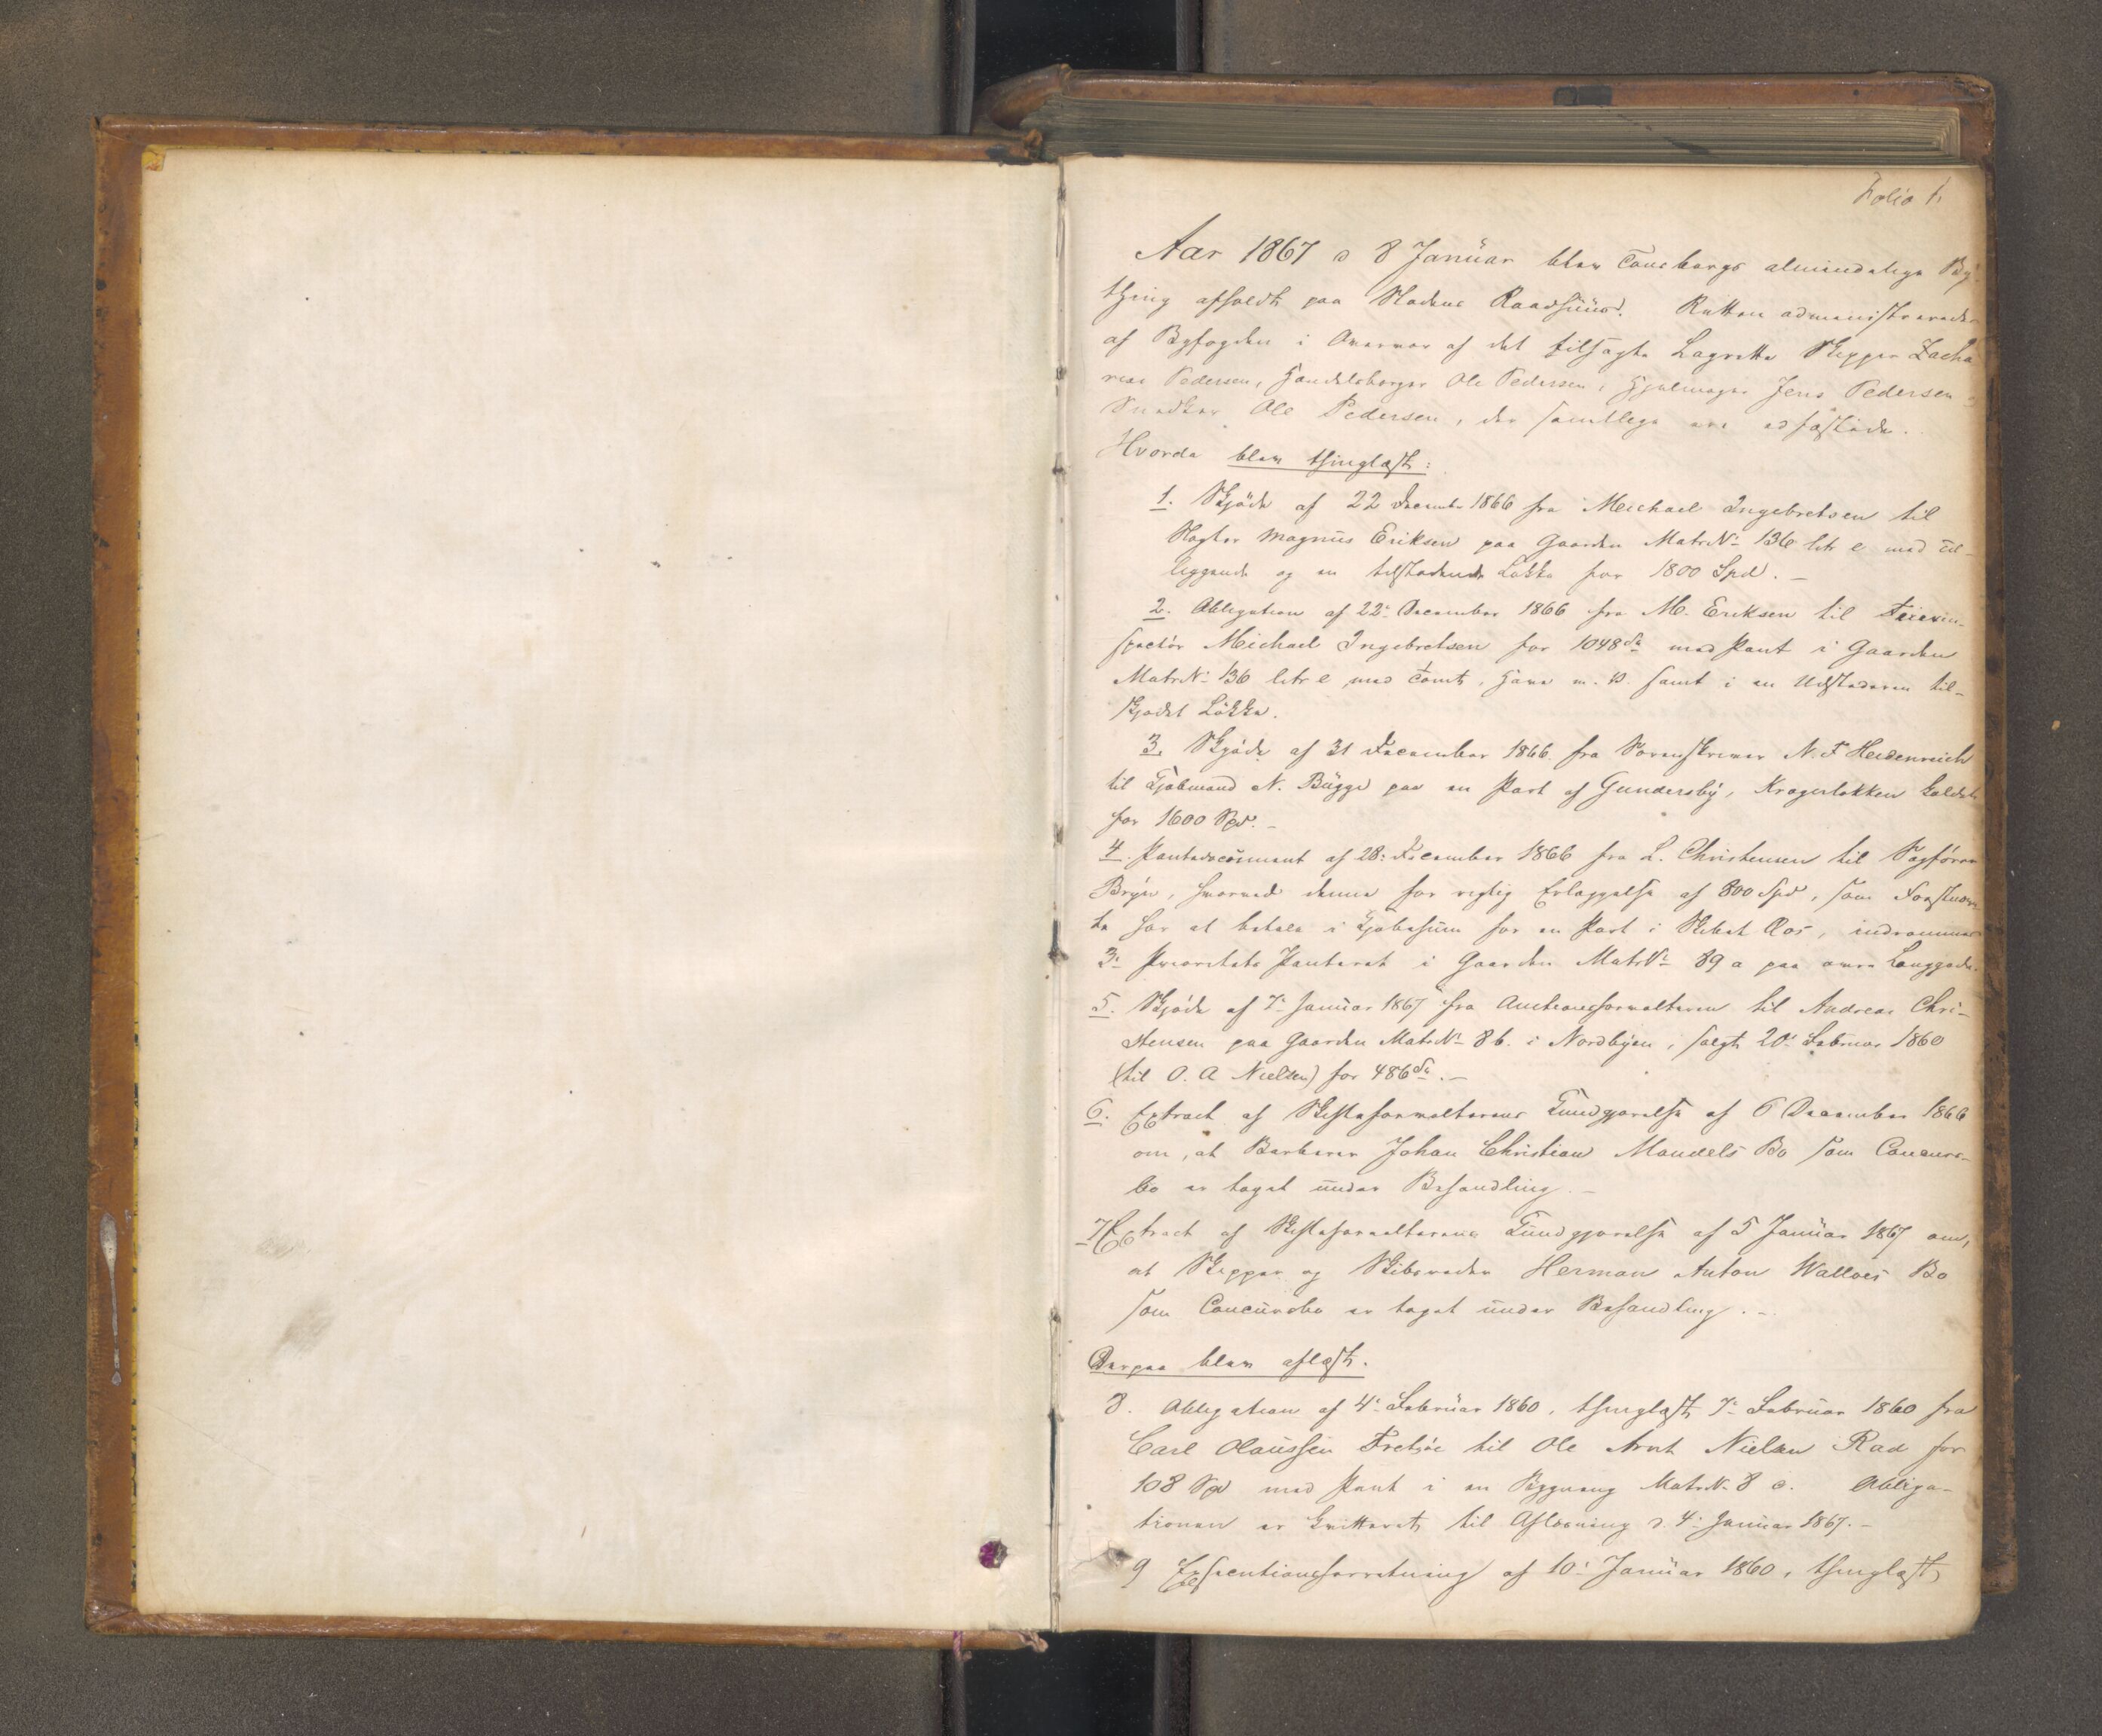 Folio 1.
Aar 1867 d 8 Januar blev Tönsbergs almindelige By-
thing afholdt paa Stadens Raadhuus. Retten administreredes
af Byfogden i Overvær af det tilsagte Lagrette Skipper Zacha-
rias Pedersen, Handelsborger Ole Pedersen, Hjulmager Jens Pedersen
Snedker Ole Pedersen, der samtlige ere edfæstede.
Hvorda blev thinglæst:
1. Skjöde af 22 Decembr 1866 fra Michael Ingebretsen til
Slagter Magnus Eriksen paa Gaarden Matr.N: 136 litr e med til-
liggende og en tilstødende Løkke for 1800 Spd. –
2. Obligation af 22: December 1866 fra M. Eriksen til Feierin-
spectör Michael Ingebretsen for 1048 Sp med Pant i Gaarden
Matr.N: 136 litr e med Tomt, Have m. v. samt i en Udstederen til-
skjødet Løkke.
3. Skjöde af 31 December 1866 fra Sorenskriver N. F Heidenreich
til Kjøbmand N. Bügge paa en Part af Gundersby, Kragerløkken kaldet
for 1600 Spd. –
4. Pantedocument af 28: December 1866 fra L. Christensen til Sagförer
Bryn, hvorved denne for rigtig Erlæggelse af 800 Spd, som Først­nævn
te har at betale i Kjøbesum for en Part i Skibet Ros, indrømmes
3: Prioritets Panteret i Gaarden Matr.N: 89 a paa øvre Langgade.
5. Skjöde af 7: Januar 1867 fra Auctionsforvalteren til Andreas Chri-
stensen paa Gaarden Matr.N: 86. i Nordbyen, solgt 20: Februar 1860
(til O. A Nielsen) for 486 Sp. –
6. Extract af Skifteforvalterens Kundgjørelse af 6 December 1866
om, at Barberer Johan Christian Mandels Bo som Concurs-
bo er taget under Behandling. –
7 Extract af Skifteforvalterens Kundgjørelse af 5 Januar 1867 om,
at Skipper og Skibsreder Herman Anton Walløes Bo
som Concursbo er taget under Behandling. –
Derpaa blev aflæst.
8. Obligation af 4: Februar 1860, thinglæst 7: Februar 1860 fra
Carl Olaussen Tretjøe til Ole Arnt Nielsen Rad for
108 Spd med Pant i en Bygning Matr.N: 8 c. Obliga-
tionen er kvitteret til Aflæsning d. 4: Januar 1867. –
9 Executionsforretning af 10: Januar 1860, thinglæst